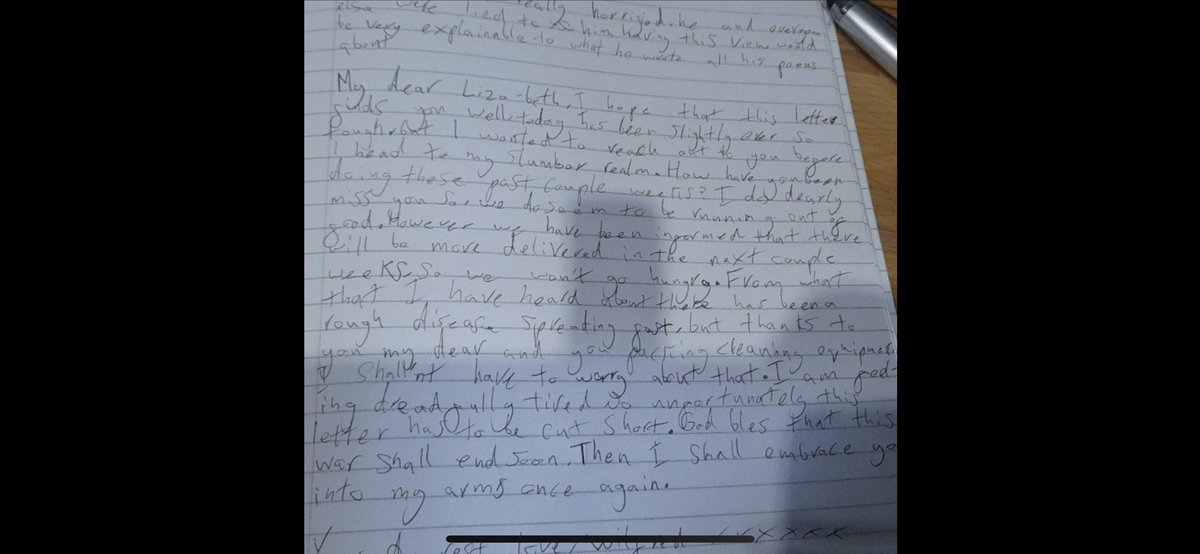 really horrified, he and
else were lied to so him having this view would
be very explainable to what he wrote all his poems
about
My dear Liza-beth, I hope that this letter
finds you well, today has been slightly ever so
tough, but I wanted to reach out to you before
I head to my slumbar realm. How have you been
doing these past couple weeks? I do dearly
miss you so, we do seem to be running out of
food. However we have been informed that there
will be more delivered in the next couple
weeks, so we won't go hungry. From what
that I have heard about there has been a
rough disease spreading fast, but thanks to
you my dear and you packing cleaning equipment
I shall'nt have to worry about that. I am feel-
ing dreadfully tired so unfortunately this
letter has to be cut short. God bles that this
war shall end soon. Then I shall embrace yo
into my arms once again.
love, wilfred xxxxx